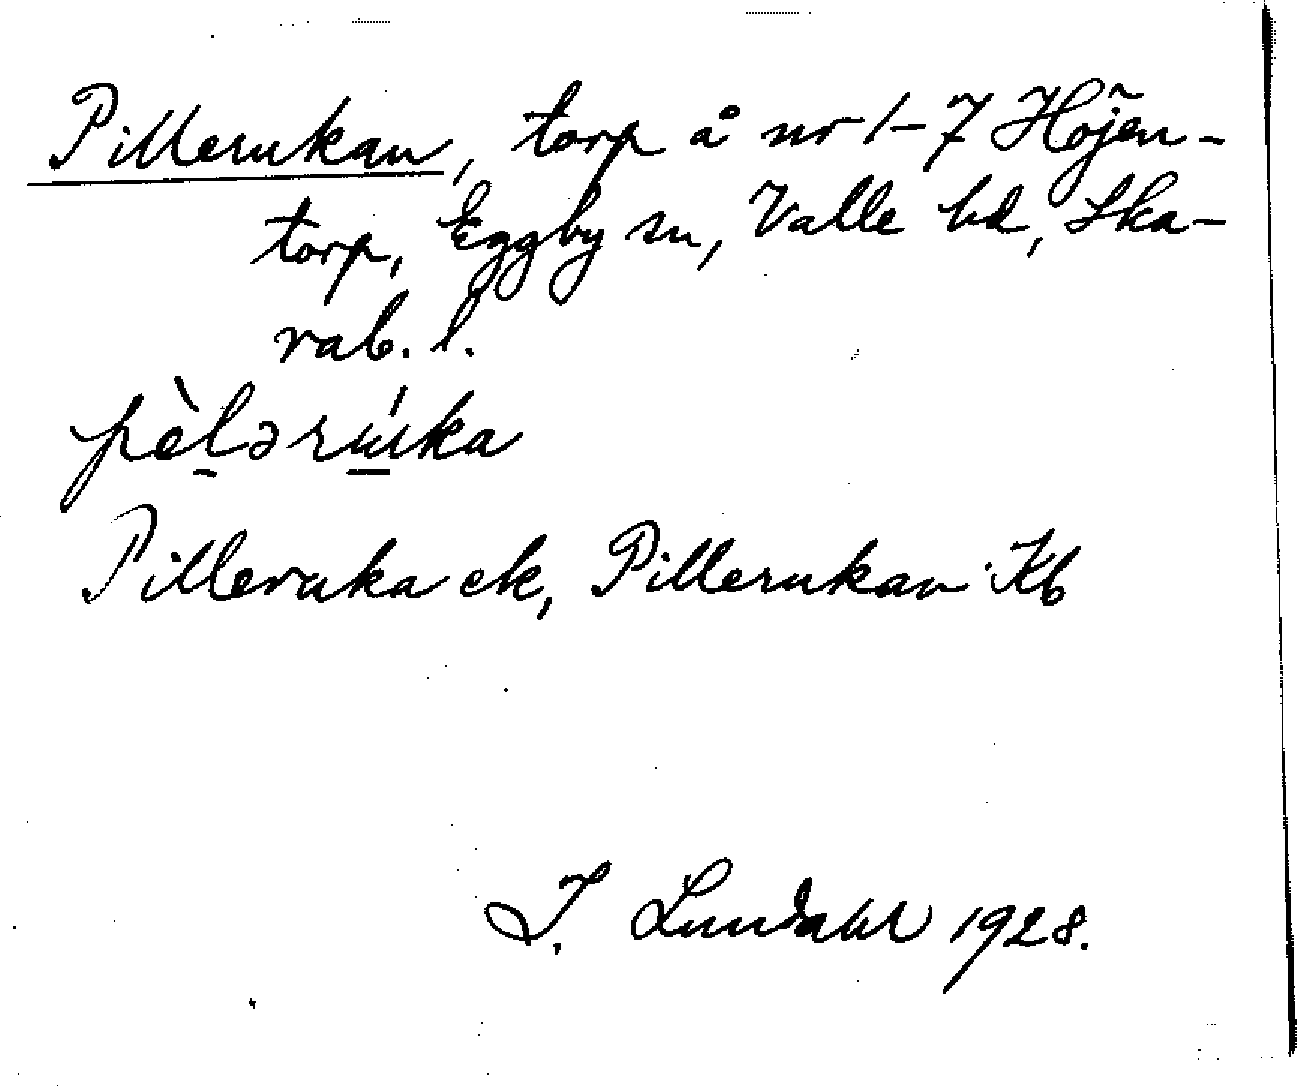 Pillerukan, torp å nr 1-7 Höjen-
torp, Eggby sn, Valle hd, Ska-
rab. l.
pèl̠ərú̠ka
Pilleruka ek, Pillerukan Kb
I. Lundahl 1928.